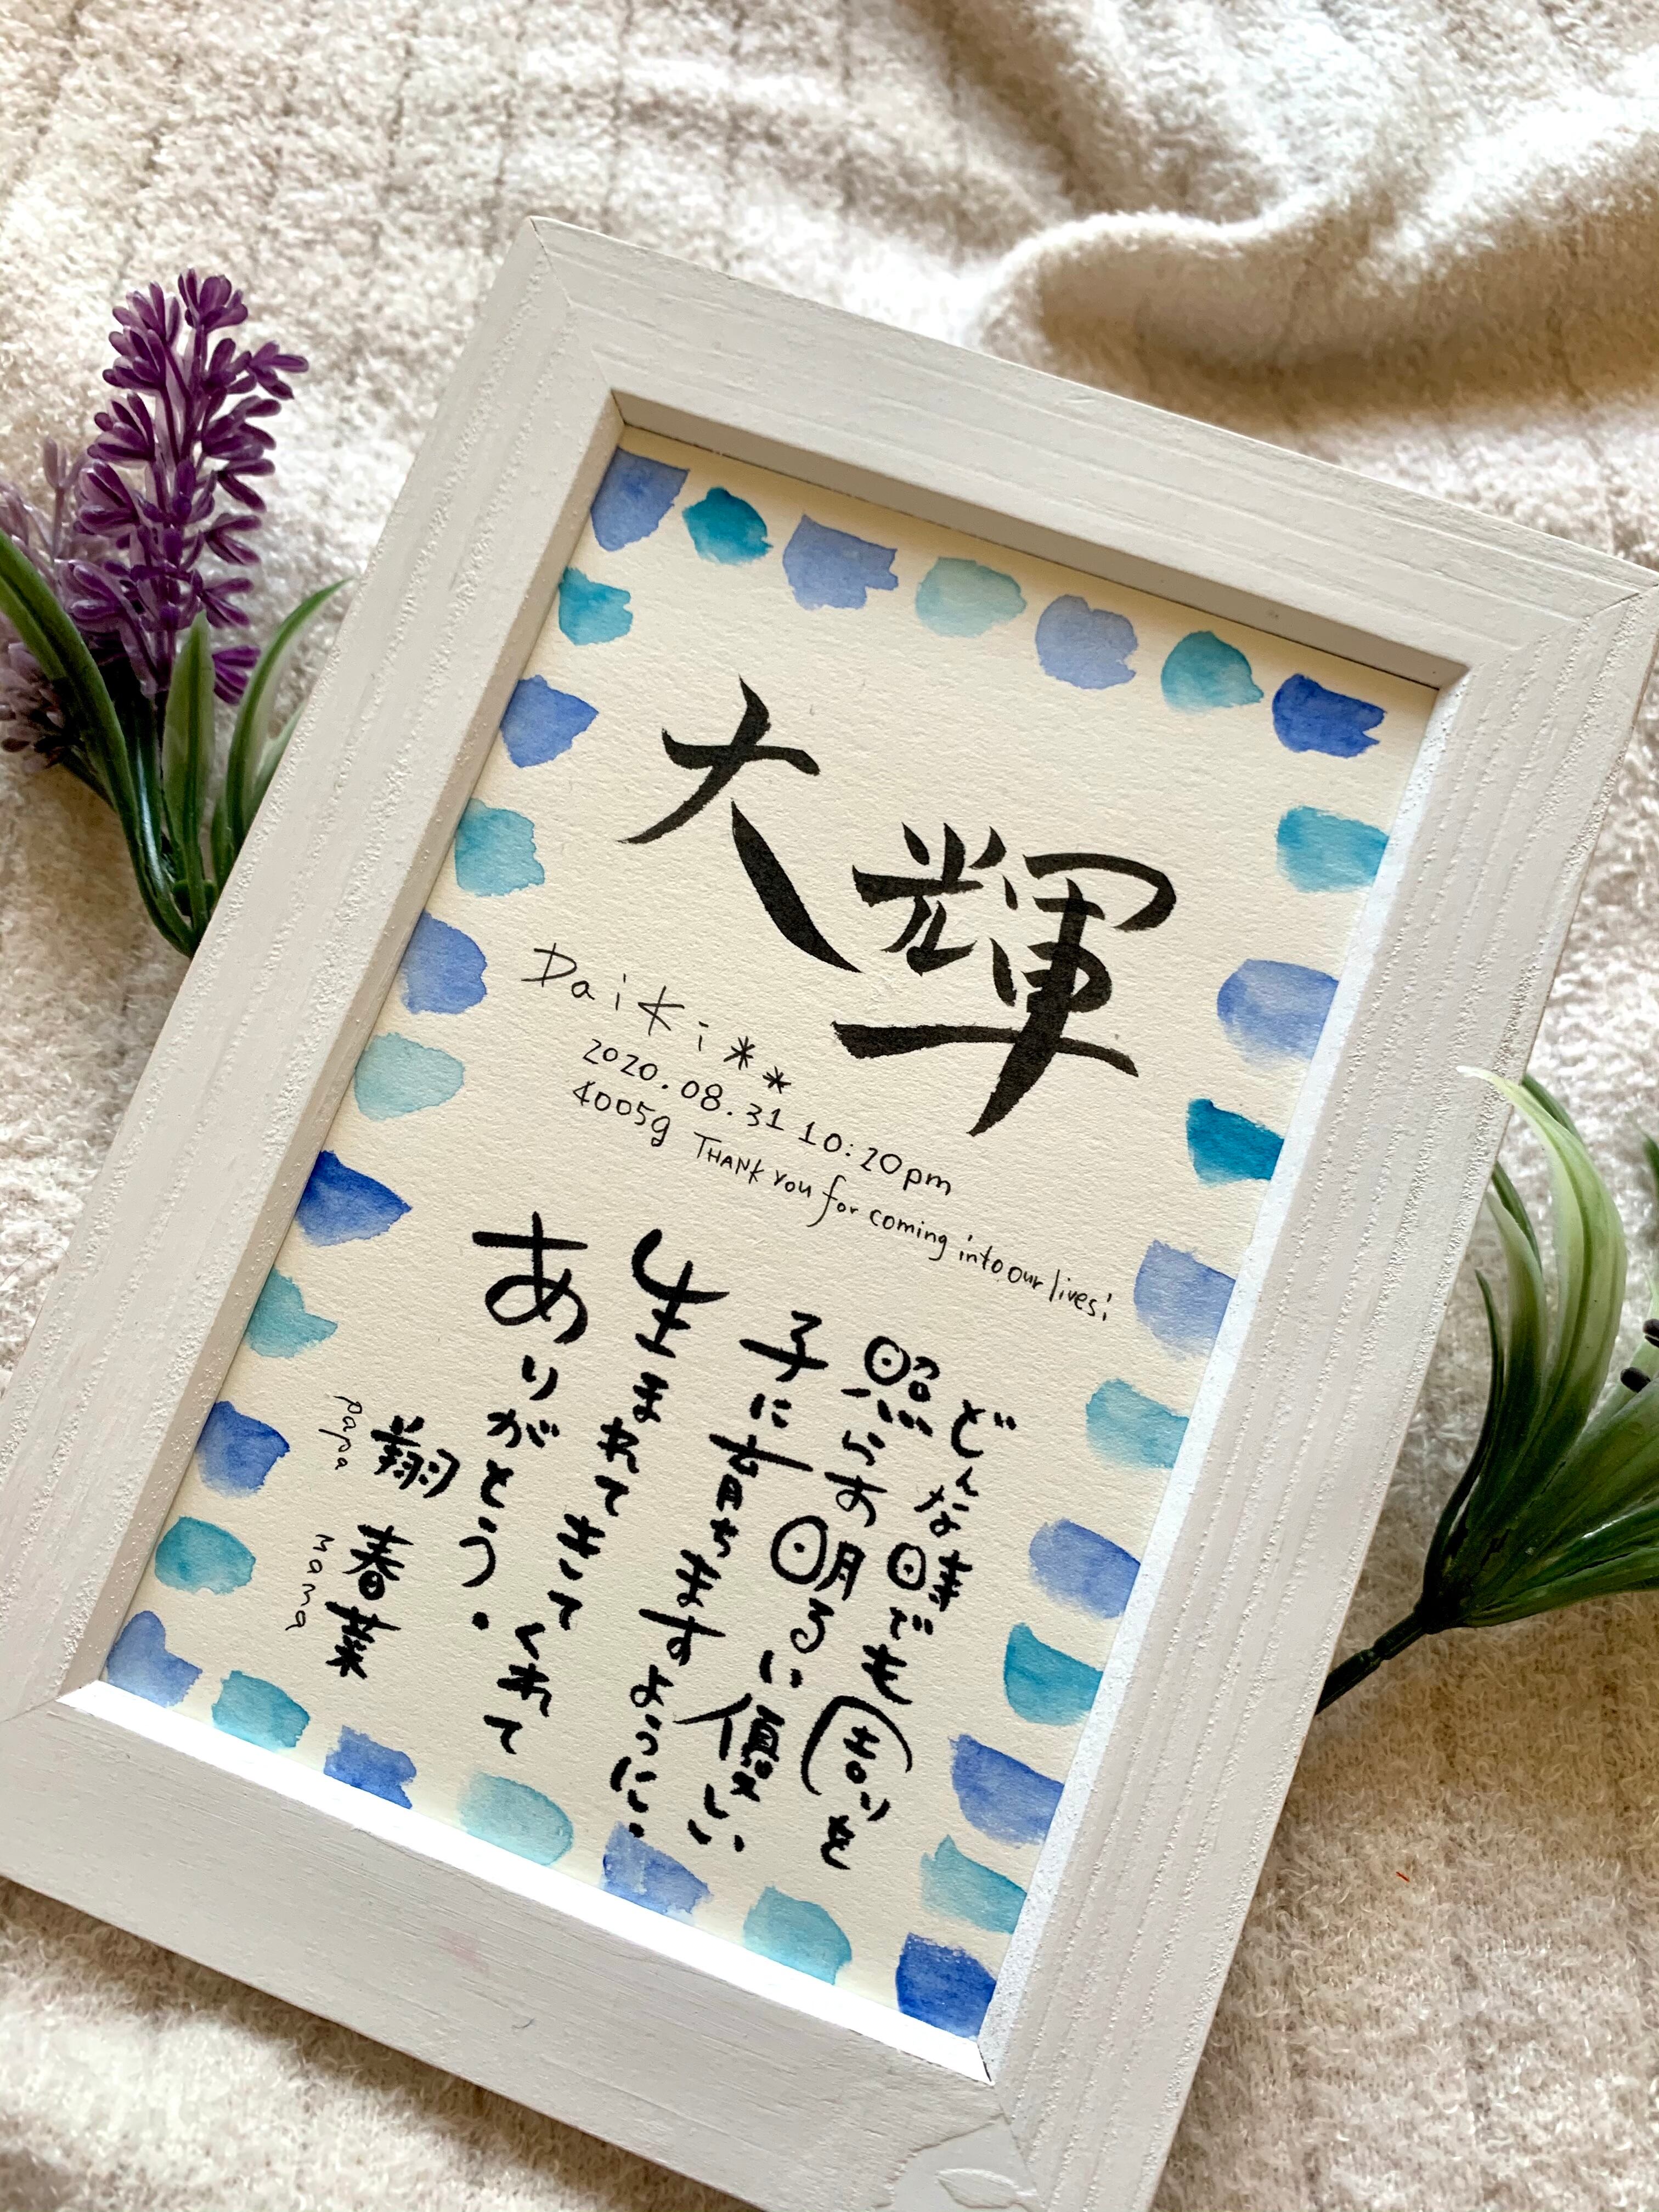 大輝
Daiki**
2020.08.31 10:20pm
4005g Thank you for coming into our lives!
どんな時でも周りを
照らす明るい優しい
子に育ちますように.
生まれてきてくれて
ありがとう.
翔 春菜
papa mama